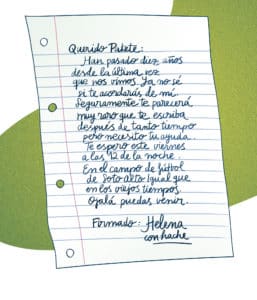 Querido Pakete:
Han pasado diez años
desde la última vez
que nos vimos. Ya no sé
si te acordarás de mí.
Seguramente te parecerá
muy raro que te escriba
después de tanto tiempo
pero necesito tu ayuda.
Te espero este viernes
a las 12 de la noche.
En el campo de fútbol
de Soto Alto igual que
en los viejos tiempos.
Ojalá puedas venir.
Firmado: Helena
con hache